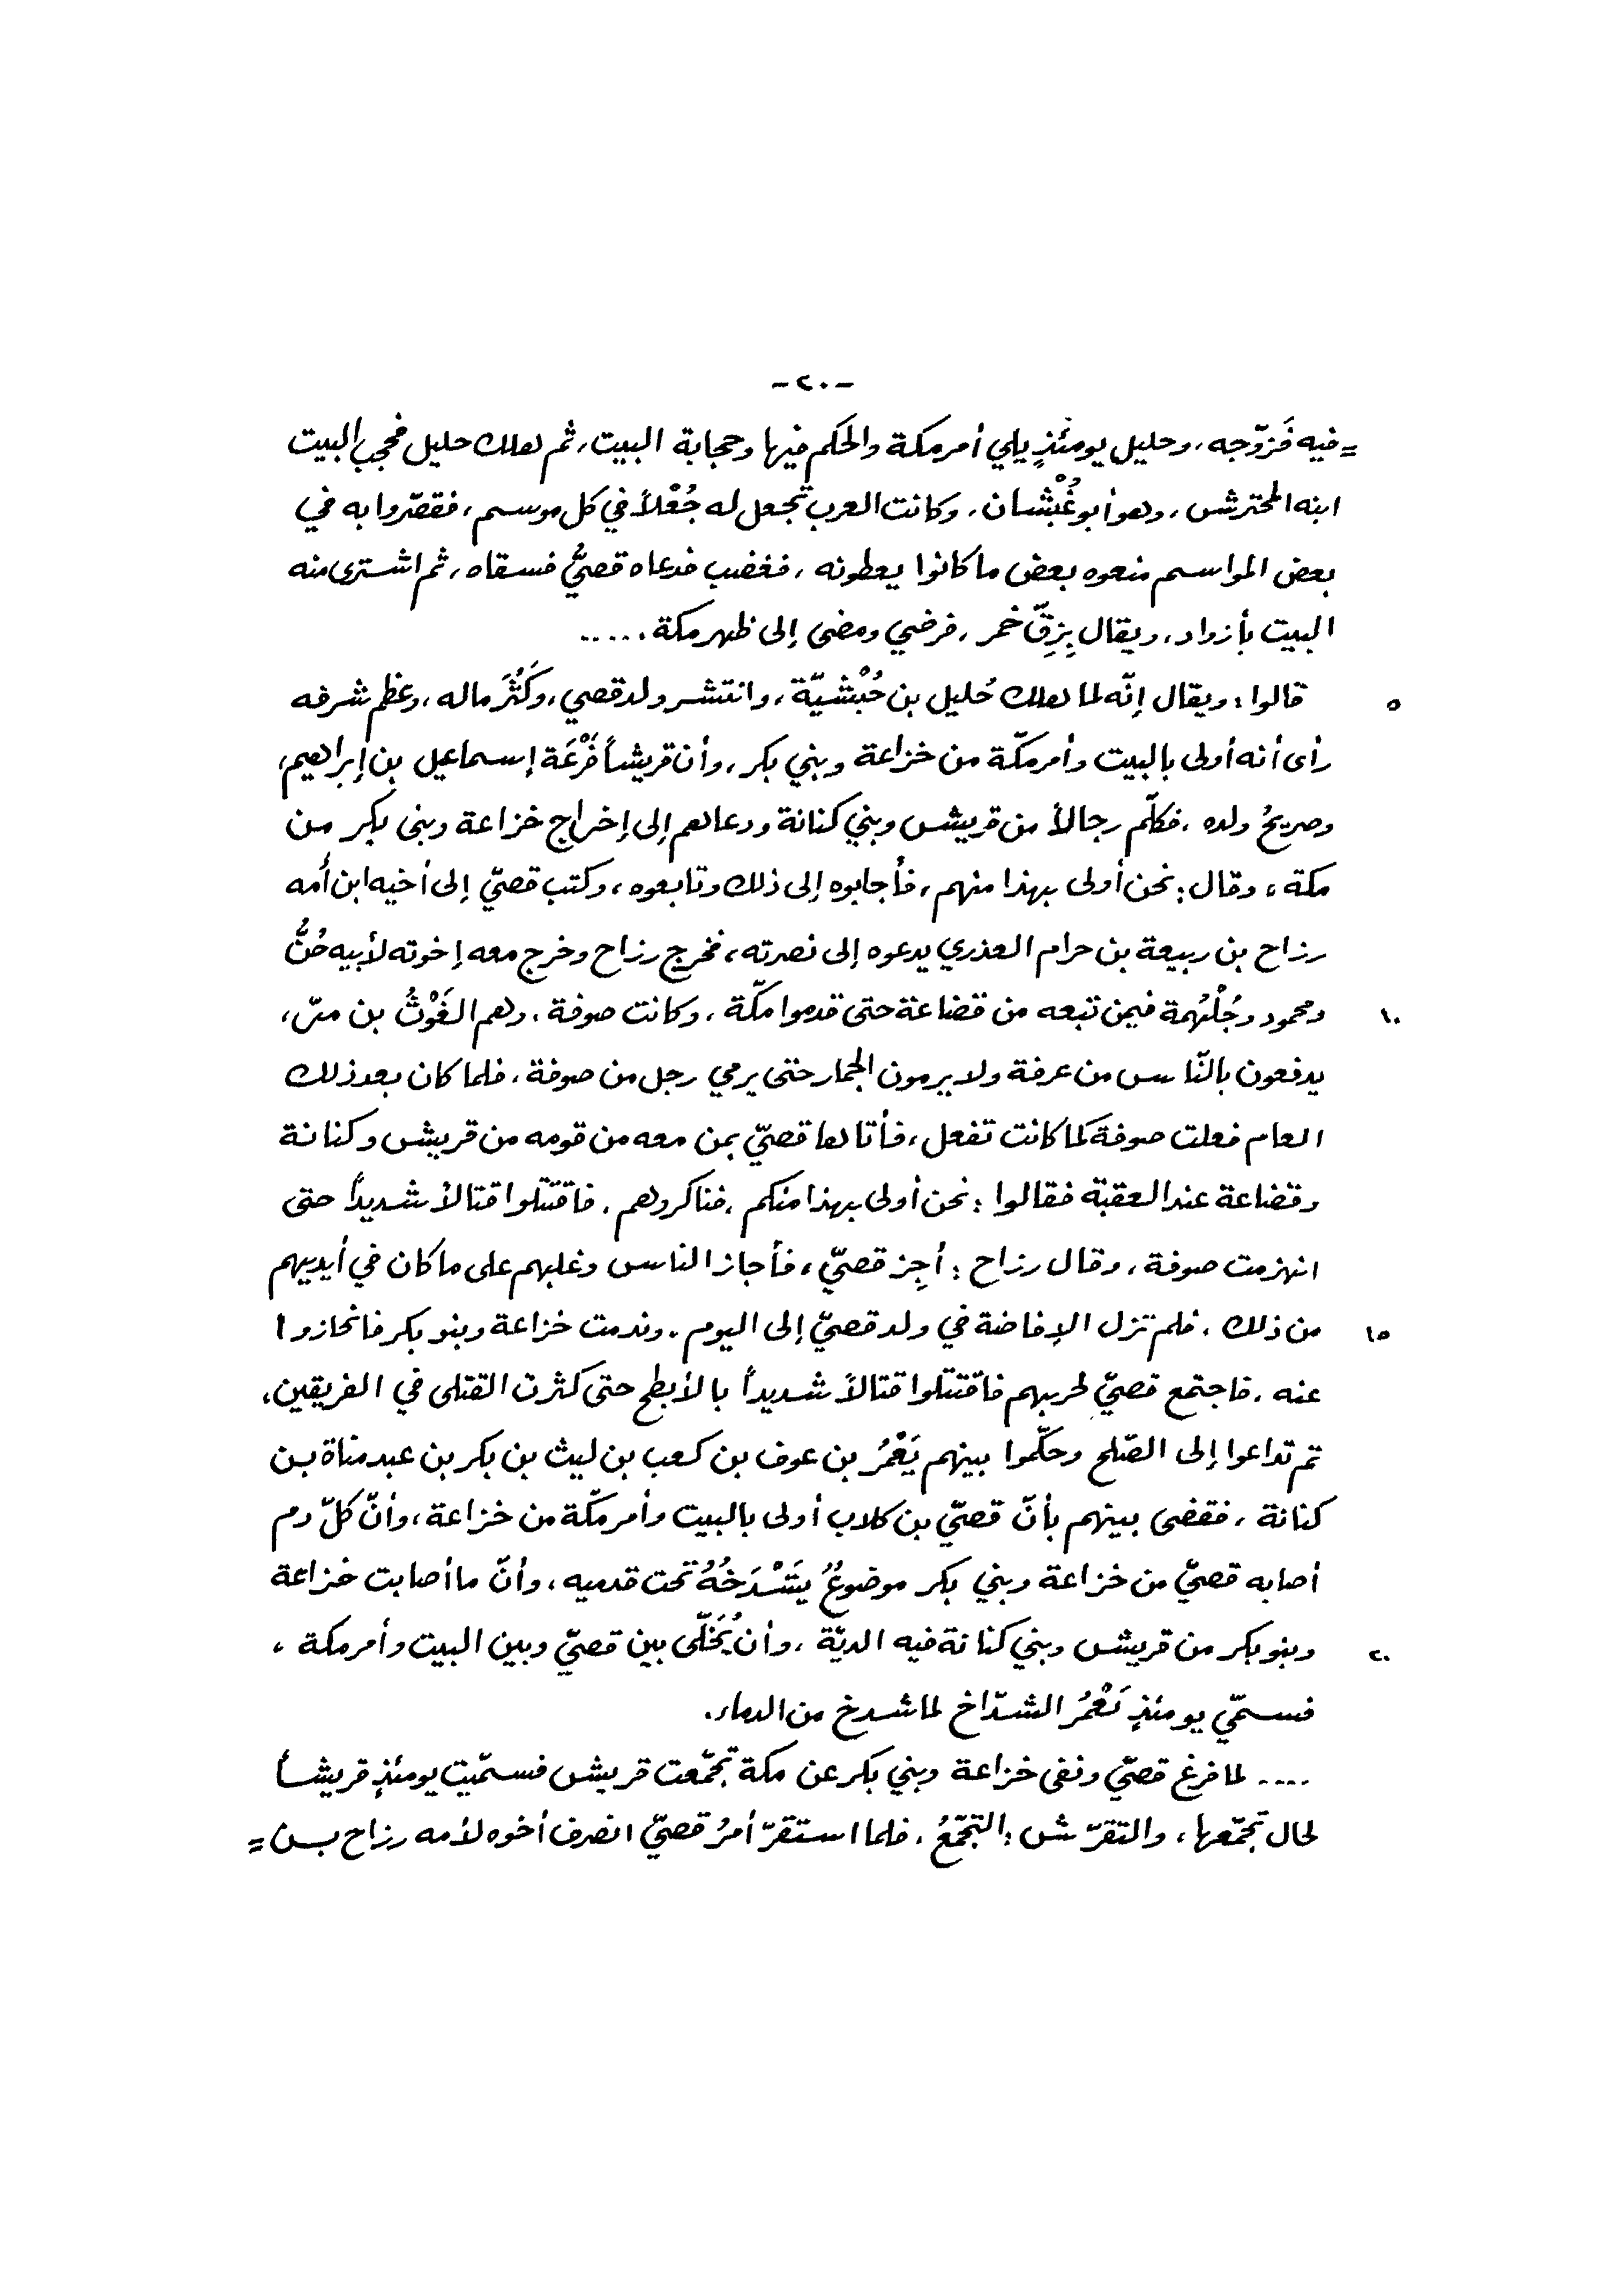 -٢٠-
= فيه فَزوّجه، وحليل يومئذٍ يلي أمر مكة والحكم فيها وحجابة البيت، ثم هلك حليل فحجب البيت
ابنه المحترش، وهو أبو غُبْشان، وكانت العرب تجعل له جُعْلاً في كل موسم، فقصّروا به في
بعض المواسم منعوه بعض ما كانوا يعطونه، فغضب فدعاه قصيٌّ فسقاه، ثم اشترى منه
البيت بأزواد، ويقال بِزِقِّ خمر، فرضي ومضى إلى ظهر مكة.....
قالوا: ويقال إنّه لما هلك حُليل بن حُبْشيّة، وانتشر ولد قصي، وكَثُرَ ماله، وعظم شرفه ٥
رأى أنه أولى بالبيت وأمر مكّة من خزاعة وبني بكر، وأن قريشاً فَرْعَة إسماعيل بن إبراهيم،
وصريحُ ولده، فكلّم رجالاً من قريش وبني كنانة ودعاهم إلى إخراج خزاعة وبني بكر من
مكة، وقال: نحن أولى بهذا منهم، فأجابوه إلى ذلك وتابعوه، وكتب قصيّ إلى أخيه ابن أمه
رزاح بن ربيعة بن حرام العذري يدعوه إلى نصرته، فخرج رزاح وخرج معه إخوته لأبيه حُنُّ
ومحمود وجُلْهُمة فيمن تبعه من قضاعة حتى قدموا مكّة، وكانت صوفة، وهم الغَوْثُ بن مرّ، ١٠
يدفعون بالنّاس من عرفة ولا يرمون الجمار حتى يرمي رجل من صوفة، فلما كان بعد ذلك
العام فعلت صوفة كما كانت تفعل، فأتاها قصيّ بمن معه من قومه من قريش وكنانة
وقضاعة عند العقبة فقالوا: نحن أولى بهذا منكم، فناكروهم، فاقتتلوا قتالاً شديداً حتى
انهزمت صوفة، وقال رزاح: أجِز قصيّ، فأجاز الناس وغلبهم على ما كان في أيديهم
من ذلك، فلم تزل الإفاضة في ولد قصيّ إلى اليوم. وندمت خزاعة وبنو بكر فانحازوا ١٥
عنه، فاجتمع قصيّ لحربهم فاقتتلوا قتالاً شديداً بالأبطح حتى كثرت القتلى في الفريقين،
ثم تداعوا إلى الصّلح وحكّموا بينهم يَعْمُرُ بن عوف بن كعب بن ليث بن بكر بن عبد مناة بن
كنانة، فقضى بينهم بأنّ قصيّ بن كلاب أولى بالبيت وأمر مكّة من خزاعة، وأنّ كلّ دم
أصابه قصيّ من خزاعة وبني بكر موضوعٌ يَتَشْدَخُهُ تحت قدميه، وأنّ ما أصابت خزاعة
وبنو بكر من قريش وبني كنانة فيه الديّة، وأن يُخَلّى بين قصيّ وبين البيت وأمر مكة، ٢٠
فسمّي يومئذٍ يَعْمُرُ الشدّاخ لما شدخ من الدماء.
.... لما فرغ قصيّ ونفى خزاعة وبني بكر عن مكة تجمّعت قريش فسمّيت يومئذٍ قريشاً
لحال تجمّعها، والتقرّش: التجمّعُ، فلما استقرّ أمرُ قصيّ انصرف أخوه لأمه رزاح بن =